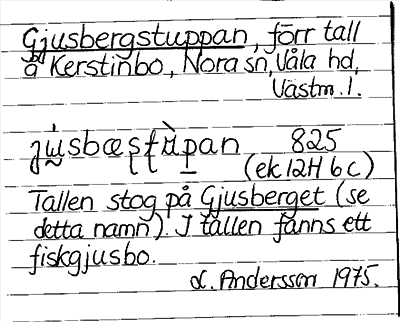 Gjusbergstuppan, förr tall
å Kerstinbo, Nora sn, Våla hd,
Västm. l.
825
(ek 12H 6c)
Tallen stog på Gjusberget (se
detta namn). I tallen fanns ett
fiskgjusbo.
L. Andersson 1975.